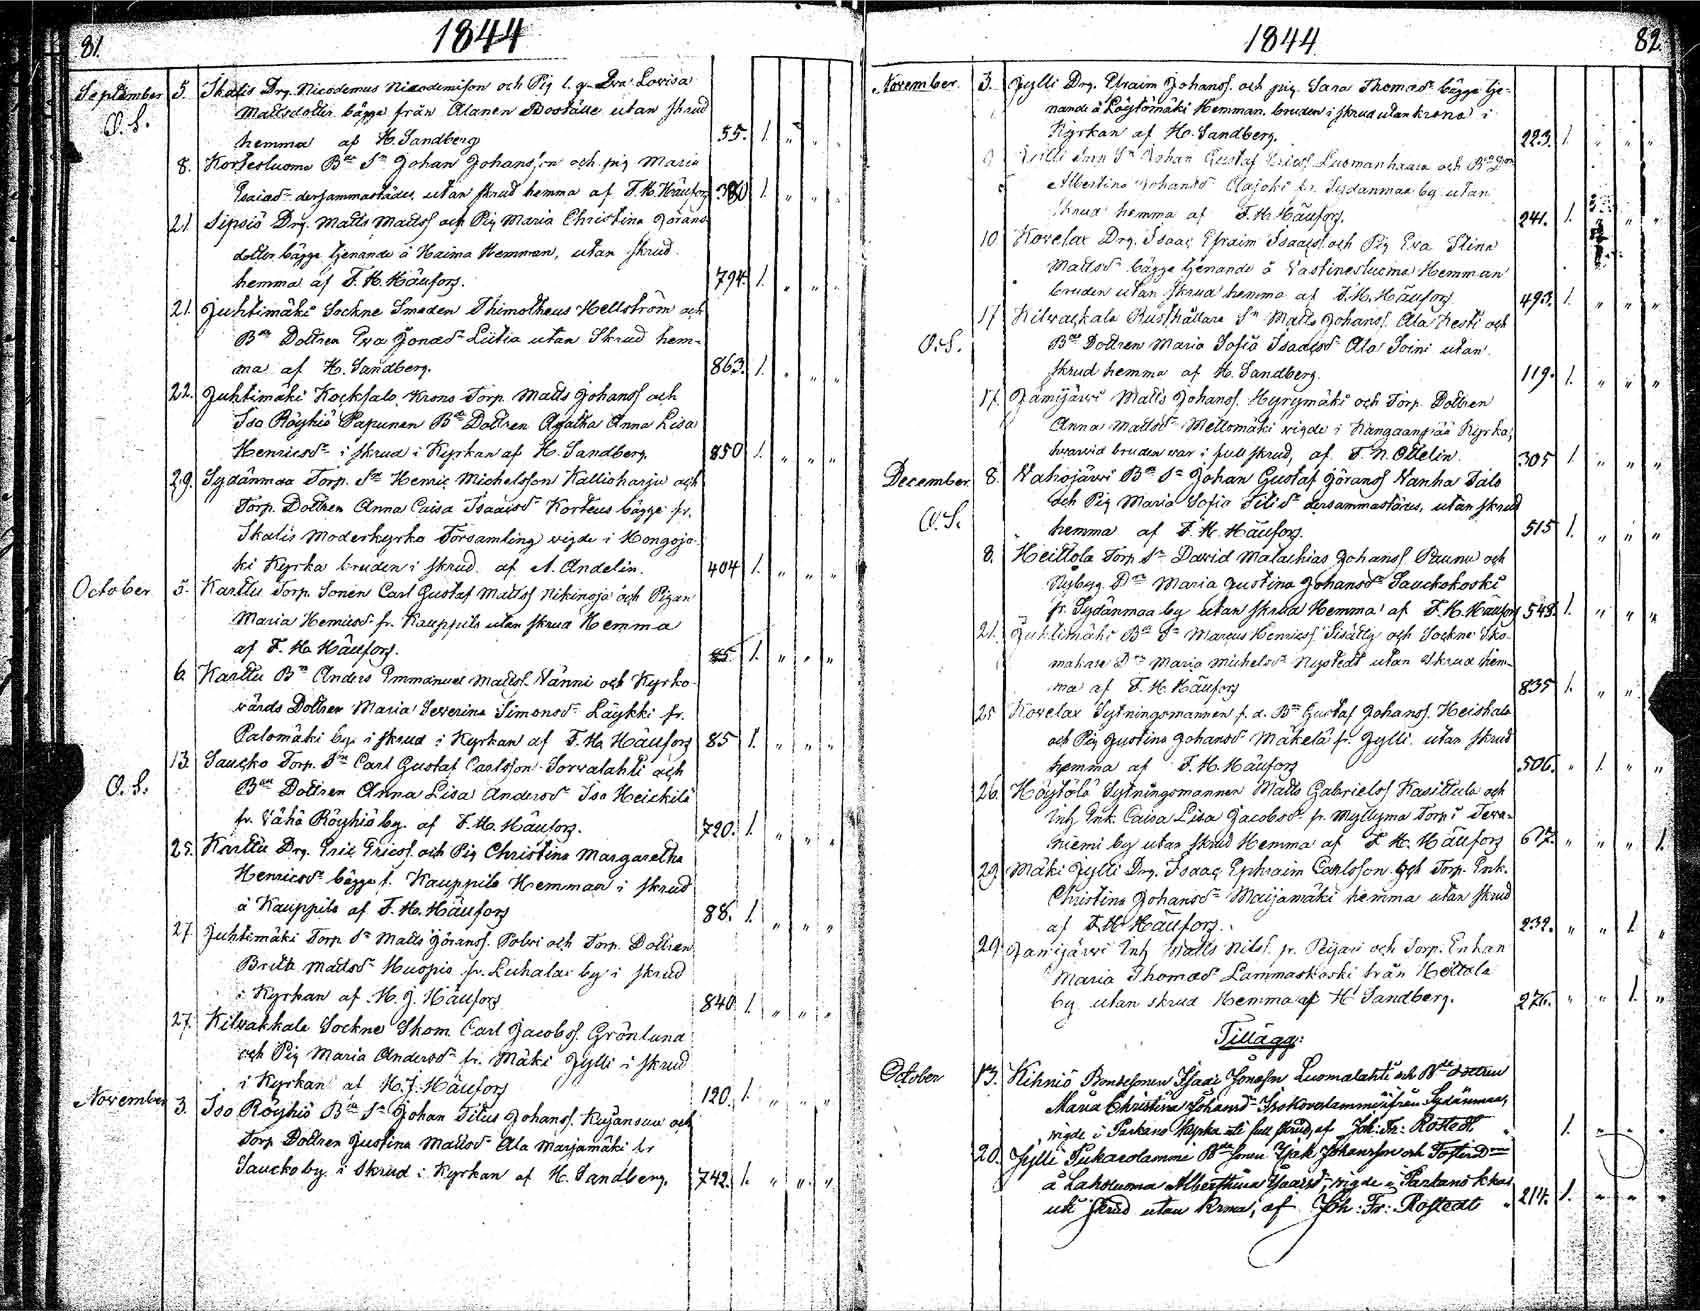 81.
1844
September 5. Skatis Drg. Nicodemus Nicodemison och Pig l. q. Eva Lovisa
Mattsdotter bägge från Alanen Boställe utan skrud
O.S.
hemma af H. Sandberg 55. 1. " " "
8. Kortesluoma Bde Sn Johan Johansson och pig Maria
Esaiasdr dersammastädes, utan skrud hemma af F.H. Häufors 380 1. " " "
21. Sipsiö Drg. Matts Mattss och Pig Maria Christina Jörans
dotter bägge tjenande å Haima Hemman, utan skrud
hemma af F.H. Häufors. 794. 1. " " "
21. Juhtimäki Sockne Smeden Thimotheus Hellström och
Bde Dottren Eva Jonasdr Liitia utan Skrud hem-
ma af H. Sandberg. 863. 1. " " "
22. Juhtimäki Kocksalo Krono Torp. Matts Johanss och
Iso Röyhiö Papunen Bde Dottren Agatha Anna Lisa
Henricsdr i skrud i Kyrkan af H. Sandberg. 850 1. " " "
29. Sydänmaa Torp. Sn Henric Michelsson Kallioharju och
Torp. Dottren Anna Caisa Isaacsdr Korteus bägge fr.
Ikalis Moderkyrko Församling vigde i Hongojo-
ki Kyrka bruden i skrud. af A. Andelin. 404 1. " " "
October 5. Karttu Torp. Sonen Carl Gustaf Mattss Nikinoja och Pigan
Maria Henricsdr fr. Kauppila utan skrud Hemma
af F.H. Häufors. 85. 1. " " "
6. Karttu Bde Anders Emmanuel Mattss. Vänni och Kyrko-
värds Dottren Maria Severina Simonsdr Läykki fr.
Palomäki by i skrud i Kyrkan af F. H. Häufors 85 1. " " "
13. Saucko Torp. Sn Carl Gustaf Carlsson Sorvalahti och
O.S.
Bde Dottren Anna Lisa Andersdr Iso Heickilä
fr. Vähä Röyhiö by. af F.H. Häufors. 720. 1. " " "
25. Karttu Drg. Eric Ericss. och Pig Christina Margaretha
Henricsdr bägge f. Kauppila Hemman i skrud
å Kauppila af F.H. Häufors 88. 1. " " "
27. Juhtimäki Torp Sn Matts Jöranss. Polvi och Torp. Dottren
Britta Mattsdr Huopio fr. Luhalax by i skrud
i Kyrkan af H.J. Häufors 840. 1. " " "
27. Kilvakkala Sockne Skom. Carl Jacobss. Grönlund
och Pig Maria Andersdr fr. Mäki Jylli i skrud
i Kyrkan af H.J. Häufors 120. 1. " " "
November 3. Iso Röyhiö Bde Sn Johan Titus Johanss. Kujansuu och
Torp Dottren Justina Mattsdr Ala Marjamäki fr
Saucko by. i Skrud i Kyrkan af H. Sandberg. 742. 1. " " "
82.
1844
November 3. Jylli Drg. Efraim Johanss. och pig. Sara Thomasdr bägge tje-
nande å Löytömäki Hemman. bruden i skrud utan krona i
Kyrkan af H. Sandberg. 223. 1. " " "
Johan Gustaf Ericss Luomanhaara och
Albertina Johansdr Alajoki fr. Sydänmaa by utan
skrud hemma af F.H. Häufors. 241. 1.
10 Kovelax Drg. Isaac Efraim Isaacss. och Pig Eva Stina
Mattsdr bägge tjenande å Vastinesluoma Hemman
bruden utan skrud hemma af F.H. Häufors. 493. 1. " " "
17 Kilvackala Rusthållare Sn Matts Johanss. Ala Kesti och
O.S.
Bde Dottren Maria Sofia Isaacsdr Ala Soini utan
skrud hemma af H. Sandberg. 119. 1. " " "
17. Jämijärvi Matts Johanss. Hyrymäki och Torp. Dottren
Anna Mattsdr Mettomäki vigde i Kangaanpää Kyrka,
hvarvid bruden var i full skrud, af F. N. Ottelin. 305 1. " " "
December 8. Vahojärvi Bde Sn Johan Gustaf Göranss Vanha Talo
och Pig Maria Sofia Titidr dersammastädes, utan skrud
O.S.
hemma af F.H. Häufors. 515 1. " " "
8. Heittola Torp. Sn David Malachias Johanss Paunu och
Nybyg. Dn Maria Justina Johansdr Sauckokoski
fr. Sydänmaa by utan skrud Hemma af F.H. Häufors 543. 1. " " "
21. Juhtimäki Bde Sn Marcus Henricss Sisättö och Sockne Sko-
makare Dn Maria Michelsdr Nystedt utan skrud hem-
ma af F.H. Häufors 835 1. " "
25 Kovelax Sytningsmannen f.d. Bde Gustaf Johanss. Heiskala
och Pig Justina Johansdr Mäkelä fr. Jylli utan skrud
hemma af F.H. Häufors 506. " 1. " "
26. Höytölä Sytningsmannen Matts Gabrielss Kasittula och
Inh Enk. Caisa Lisa Jacobsdr fr. Myllymä Torp i Terva-
niemi by utan skrud Hemma af F. H. Häufors 617. " " " 1.
29. Mäki Jylli Drg. Isaac Ephraim Carlsson och Torp. Enk.
Christina Johansdr Maijamäki hemma utan skrud
af F.H. Häufors. 232. " " 1. "
29 Jämijärvi Inh Matts Nilss. fr. Peijari och Torp. Enkan
Maria Thomasdr Lammaskoski från Heittola
by utan skrud Hemma af H Sandberg. 276. " " 1. "
Tillägg:
October 13. Kihniö Bondesonen Isaac Jonasson Luomalahti och Bde dottren
Maria Christina Johansdr ifrån Sydänmaa,
vigde i Parkano Kapka uti full skrud, af Joh: Fr: Rostedt " 1. " " "
20. Jylli Tukaeolammi Bde sonen Isak Johansson och
å Laholuoma Alberthina Isaacsdr, vigde i Parkano k.ka
uti skrud utan krona, af Joh: Fr: Rostedt " 214. 1. " " "